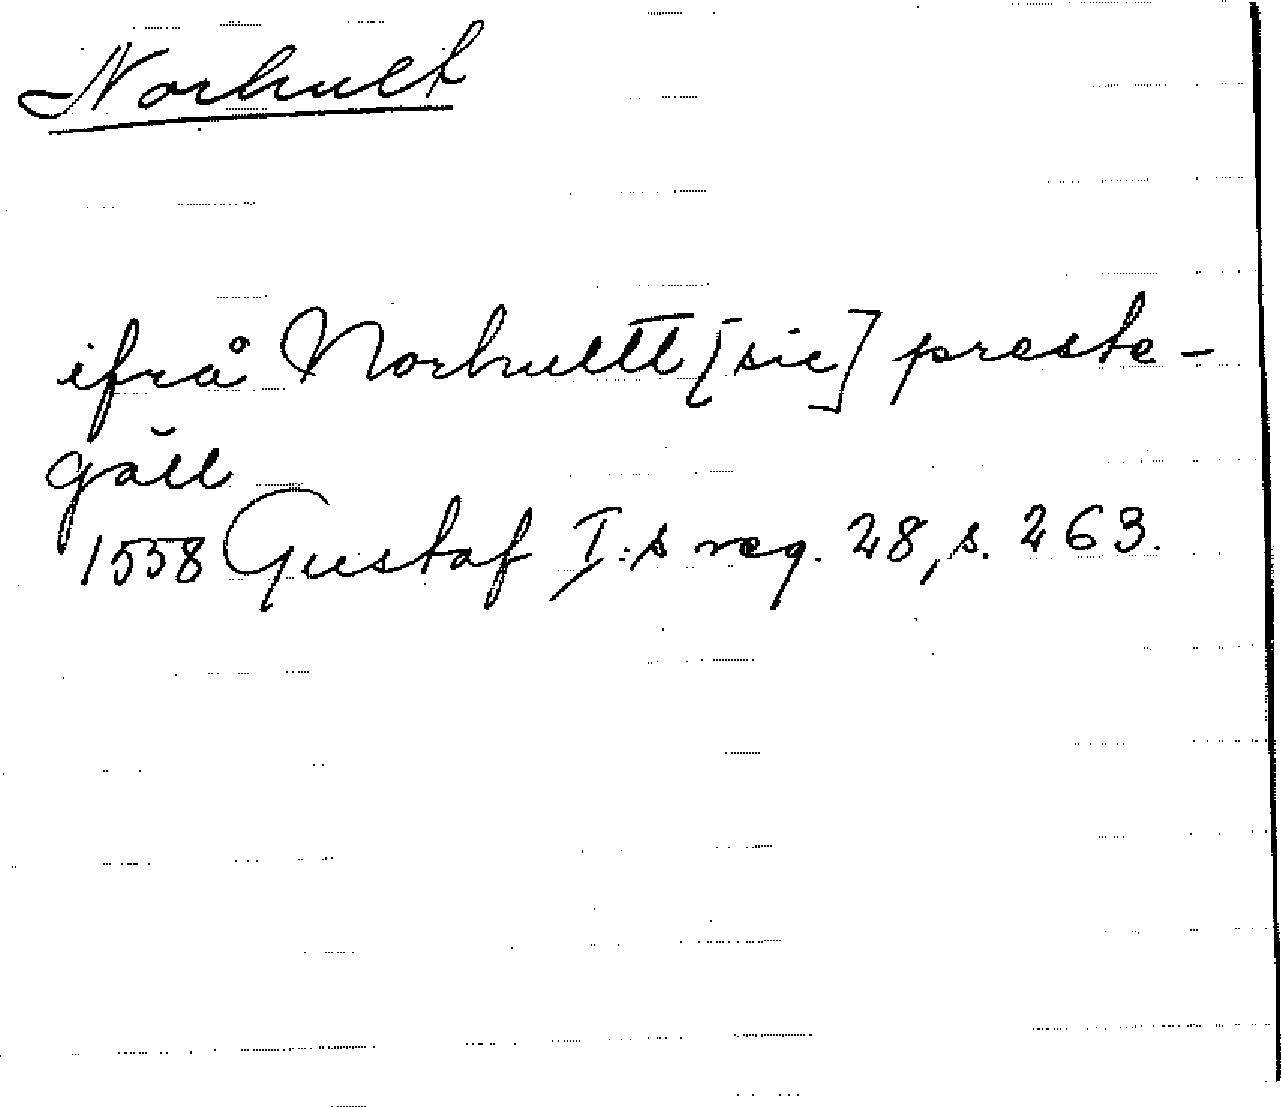 Norhult
ifrå Norhultt [sic] preste-
găll
1558 Gustaf I:s reg. 28, s. 263.